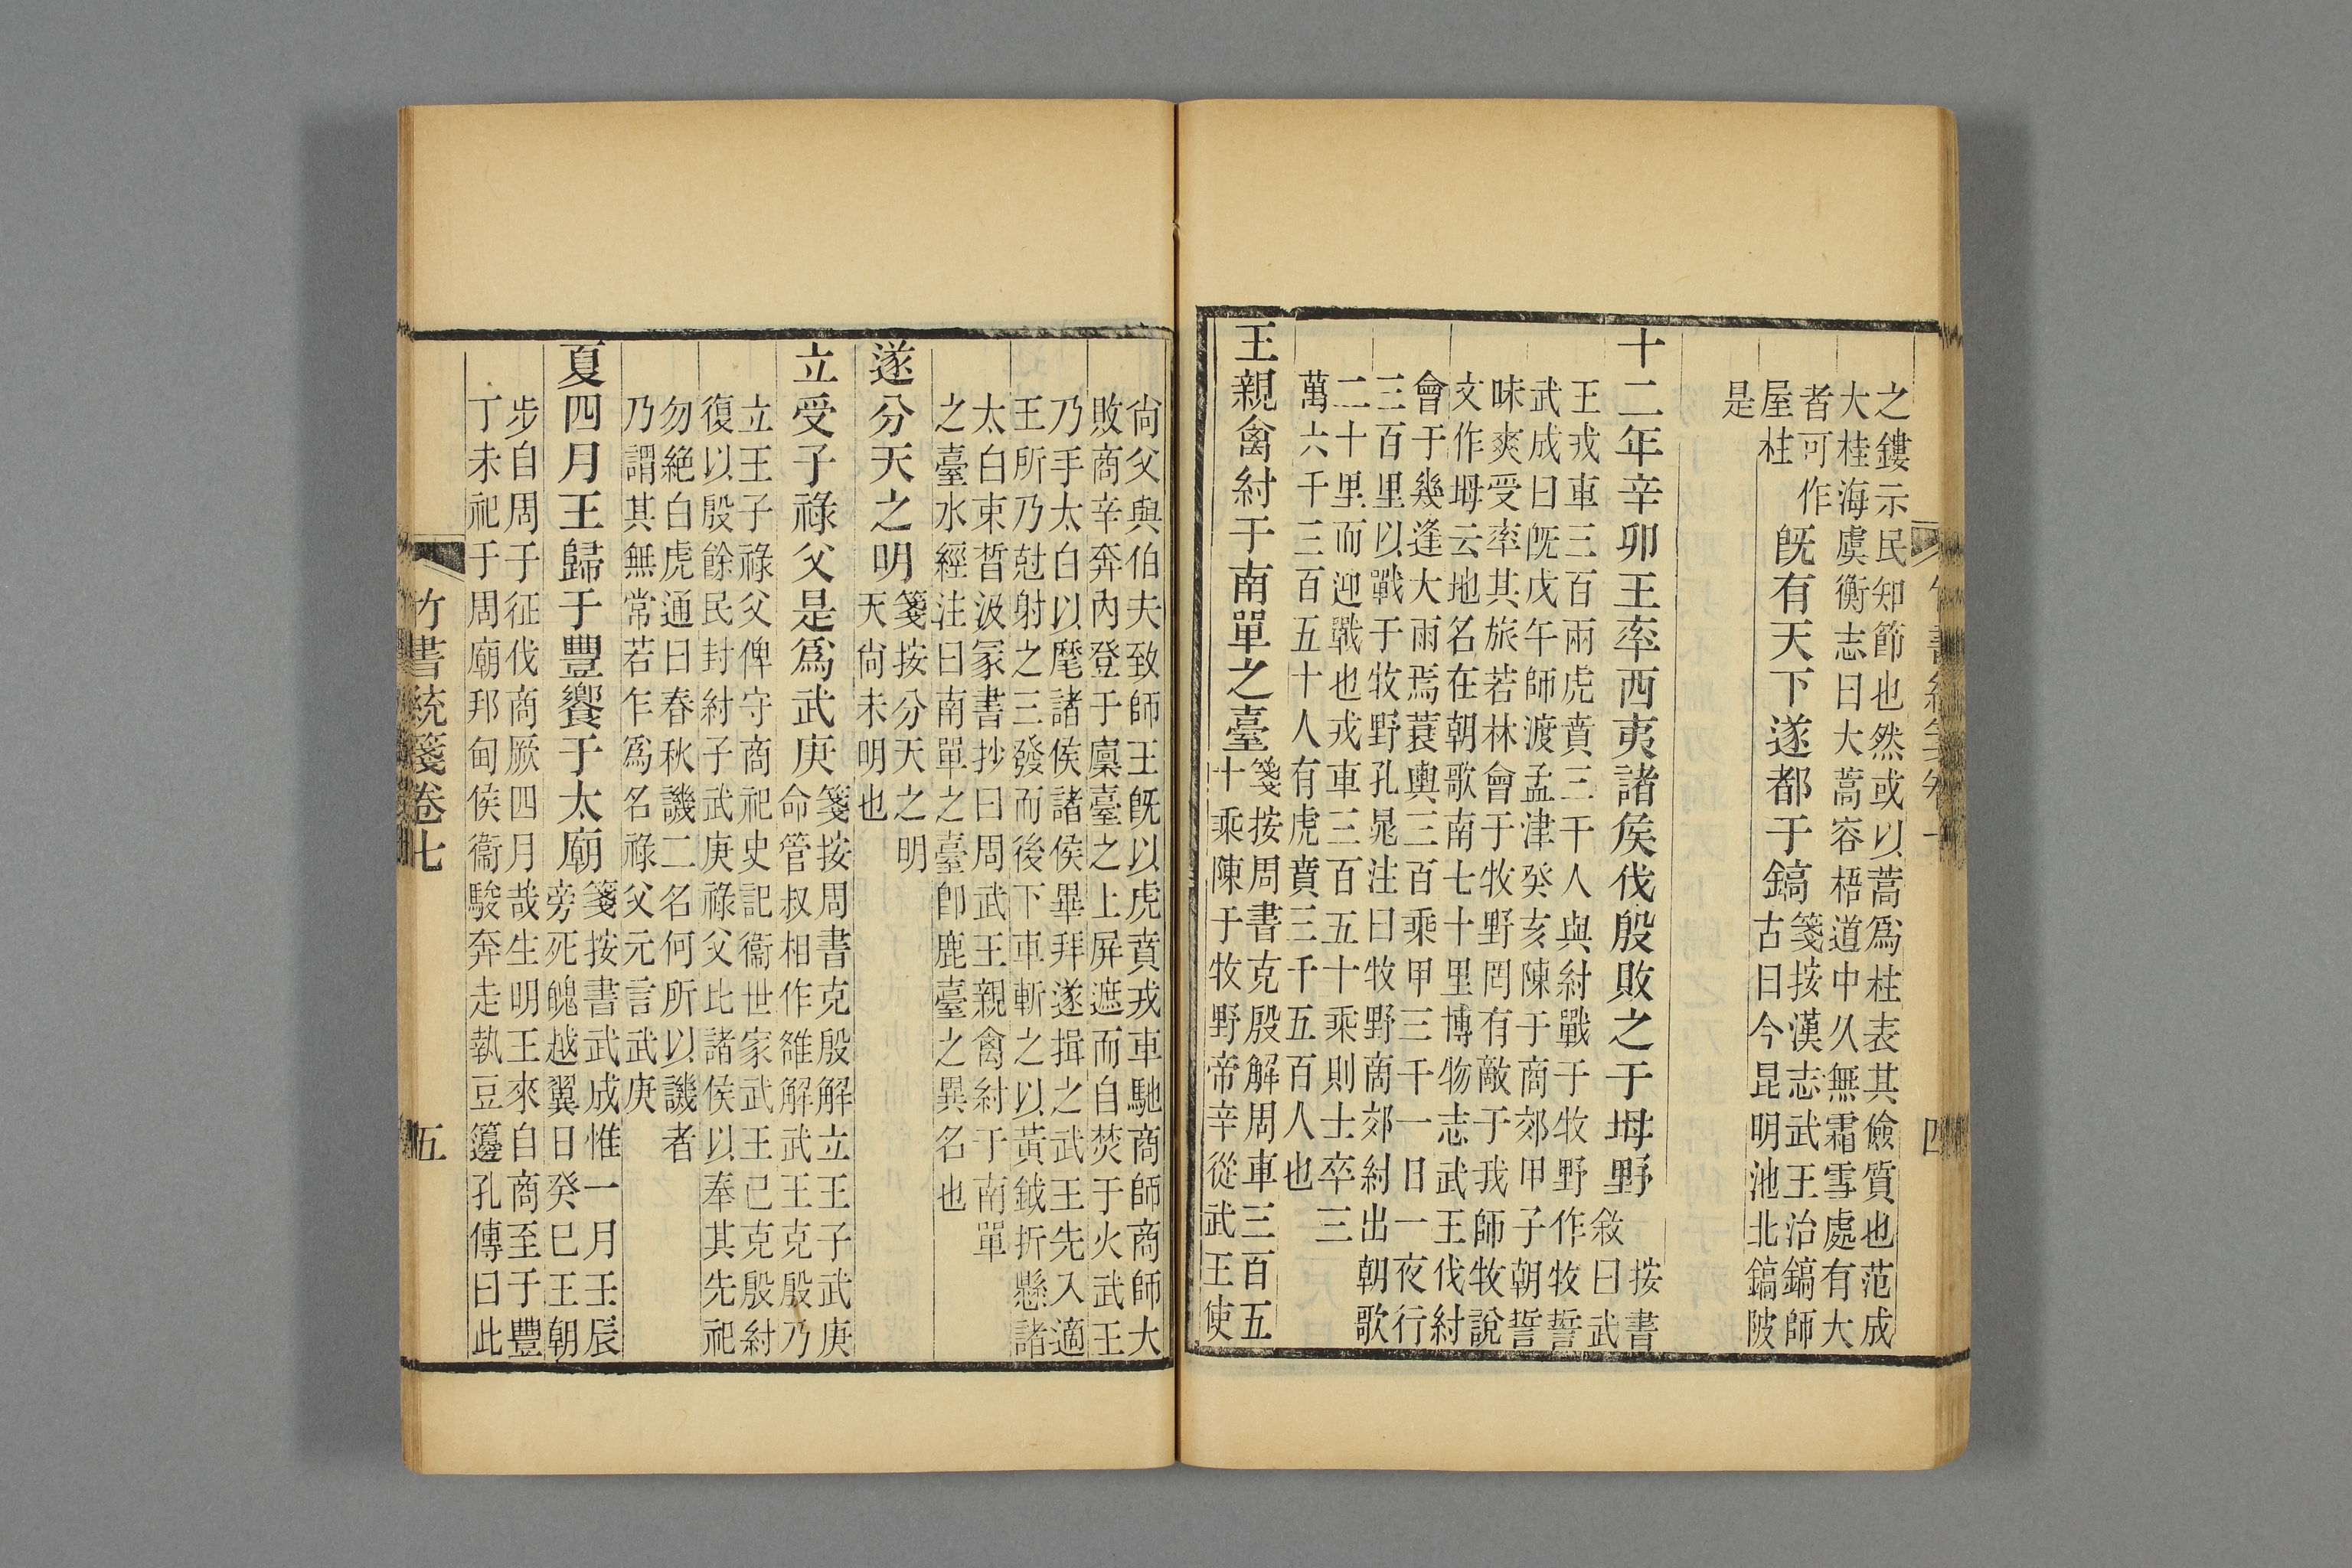 之鏤示民知節也然或以蒿爲柱表其儉質也范成
大桂海虞衡志曰大蒿容梧道中久無霜雪處有大
者可作
屋柱
是
旣有天下遂都于鎬
箋按漢志武王治鎬師
古曰今昆明池北鎬陂
十二年辛卯王率西夷諸侯伐殷敗之于坶野
按書
敘曰武
王戎車三百兩虎賁三千人與紂戰于牧野作牧誓
武成曰旣戊午師渡孟津癸亥陳于商郊甲子朝誓
昧爽受率其旅若林會于牧野罔有敵于我師牧說
文作坶云地名在朝歌南七十里博物志武王伐紂
會于幾逢大雨焉蓑輿三百乘甲三千一日一夜行
三百里以戰于牧野孔晁注曰牧野商郊紂出朝歌
二十里而迎戰也戎車三百五十乘則士卒三
萬六千三百五十人有虎賁三千五百人也
王親禽紂于南單之臺
箋按周書克殷解周車三百五
十乘陳于牧野帝辛從武王使
尙父與伯夫致師王旣以虎賁戎車馳商師商師大
敗商辛奔內登于廩臺之上屏遮而自焚于火武王
乃手太白以麾諸侯諸侯畢拜遂揖之武王先入適
王所乃尅射之三發而後下車斬之以黃鉞折懸諸
太白束晳汲冢書抄曰周武王親禽紂于南單
之臺水經注曰南單之臺卽鹿臺之異名也
遂分天之明
箋按分天之明
天尙未明也
立受子祿父是爲武庚
箋按周書克殷解立王子武庚
命管叔相作雒解武王克殷乃
立王子祿父俾守商祀史記衞世家武王已克殷紂
復以殷餘民封紂子武庚祿父比諸侯以奉其先祀
勿絶白虎通曰春秋譏二名何所以譏者
乃謂其無常若乍爲名祿父元言武庚
夏四月王歸于豐饗于太廟
箋按書武成惟一月壬辰
旁死魄越翼日癸巳王朝
步自周于征伐商厥四月哉生明王來自商至于豐
丁未祀于周廟邦甸侯衞駿奔走執豆籩孔傳曰此
竹書統箋卷七
五
四